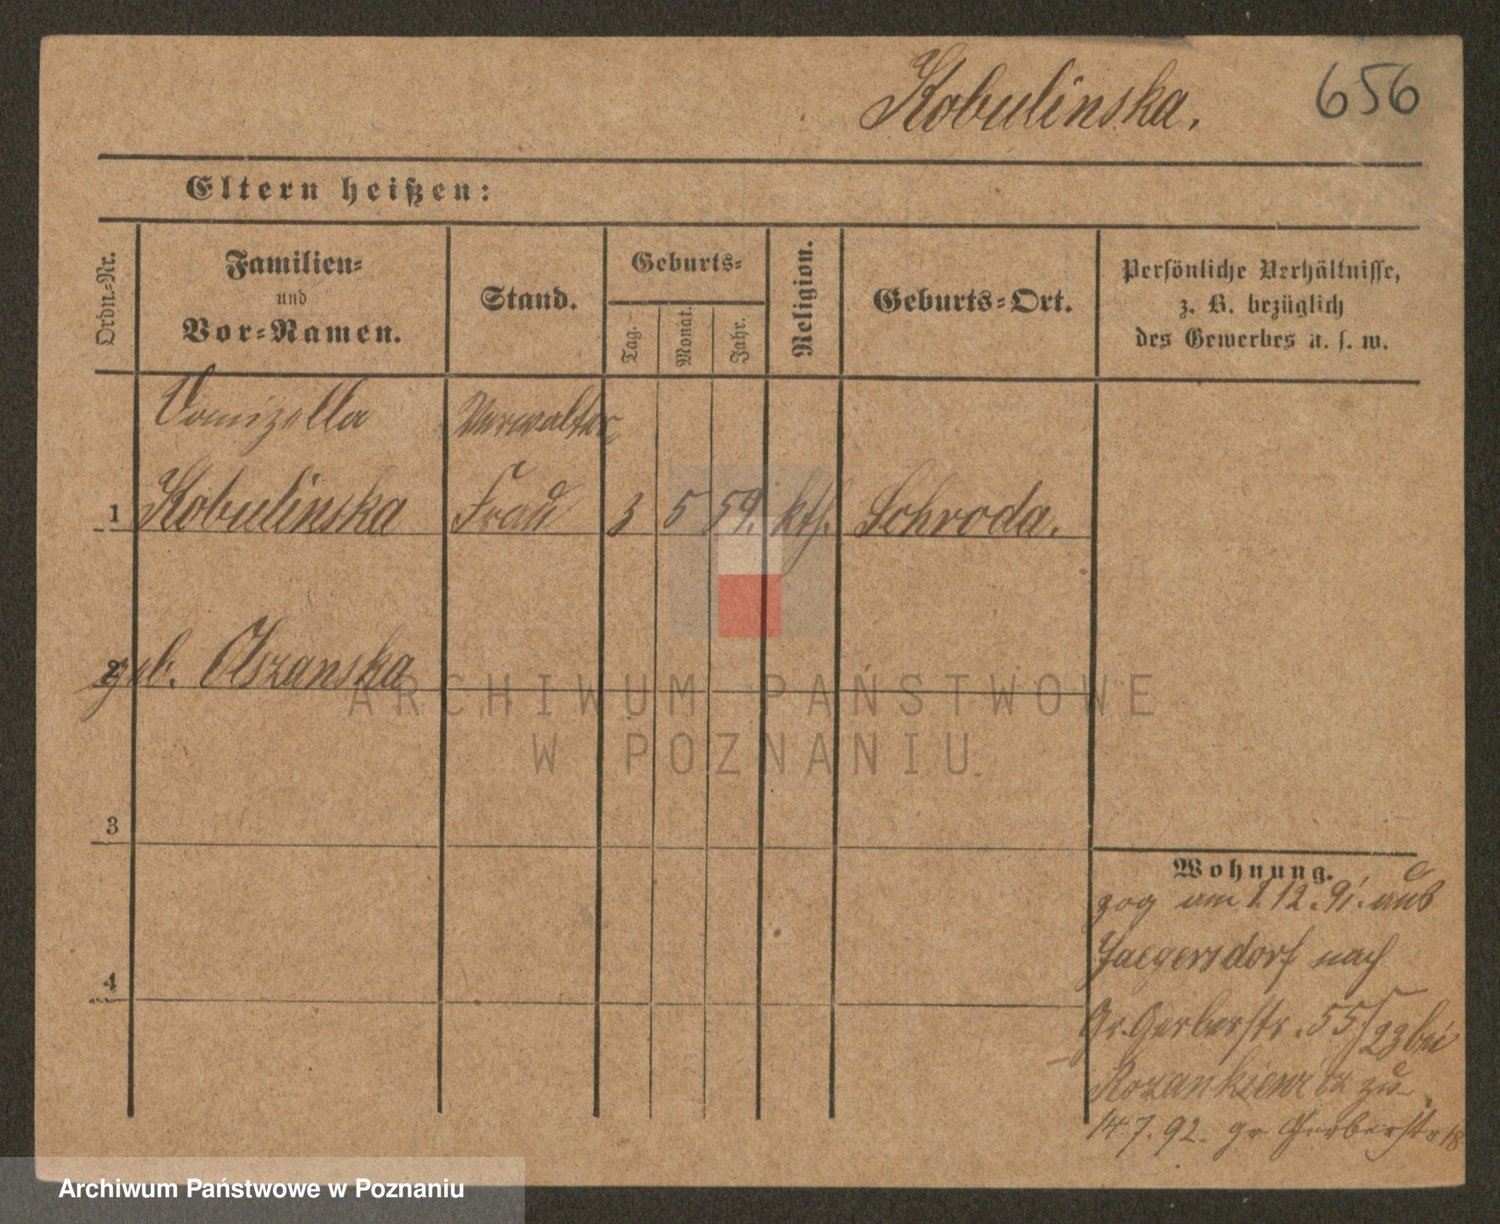 Kobulinska.
656
Eltern heißen:
Ordn.-Nr.
Familien-
und
Vor-Namen.
Stand.
Geburts-
Tag.
Monat.
Jahr.
Religion.
Geburts-Ort.
Persönliche Verhältnisse,
z. B. bezüglich
des Gewerbes u. s. w.
Verwalter
1 Kobulinska Frau 3 5 59. kth. Schroda.
2 geb. Olszanska
3
4
Wohnung.
zog am 1.12.91. aus
Jaegersdorf nach
Gr. Gerberstr. 55/23 bei
zu
14.7.92. gr. Gerberstr 18
ARCHIWUM PAŃSTWOWE
W POZNANIU
Archiwum Państwowe w Poznaniu